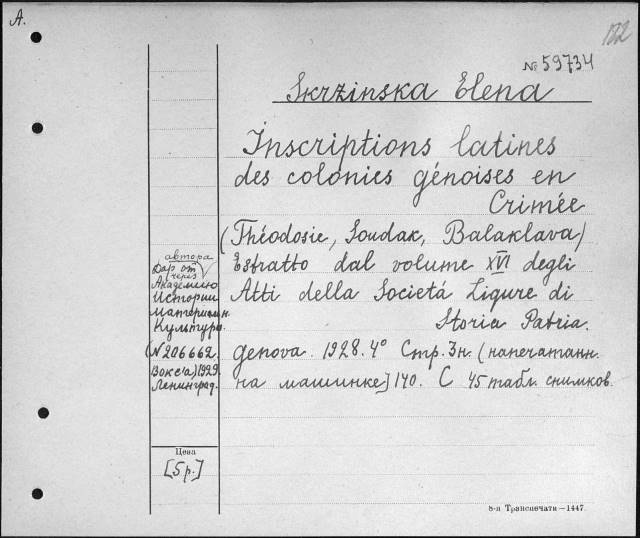 A.
122
№ 59734
Skržinska Elena
Inscriptions latines
des colonies génoises en
Crimée
(Théodosie, Soudak, Balaklava)
Estratto dal volume XVI degli
Atti della Societá Ligure di
Storia Patria.
genova. 1928. 4° Стр. 3н. (напечатанн.
на машинке] 140. С 45 табл. снимков.
автора
Дар от
через
Академию
Истории
Материальн.
Культуры.
(N 206662.
Вокс'а) 1929.
Ленинград.
Цена
[5 р.]
8-я Транспечати—1447.